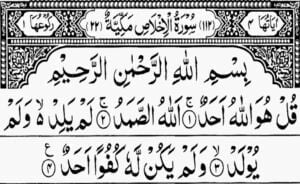 اٰیَاتُهَا ٤ (١١٢) سُوْرَةُ الْاِخْلَاصِ مَكِّيَّةٌ (٢٢) رُكُوْعُهَا ١
بِسْمِ اللّٰهِ الرَّحْمٰنِ الرَّحِيْمِ
قُلْ هُوَ اللّٰهُ اَحَدٌ ۚ ١ اَللّٰهُ الصَّمَدُ ۚ ٢ لَمْ يَلِدْ ۙ وَلَمْ
يُوْلَدْ ۙ ٣ وَلَمْ يَكُنْ لَّهٗ كُفُوًا اَحَدٌ ۠ ع ٤